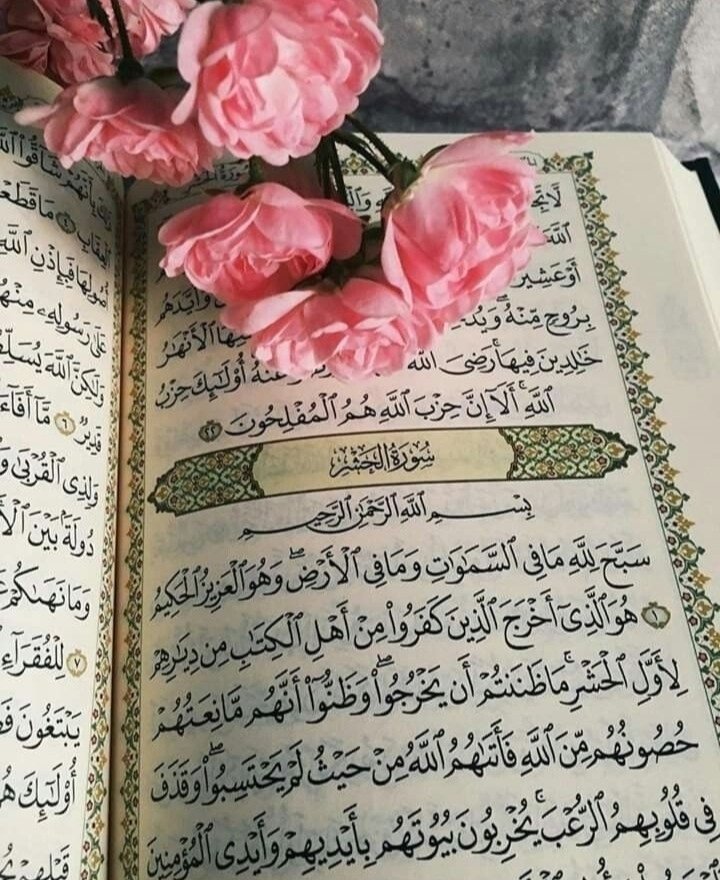 ٱللَّهَ
أَوْ عَشِيرَ وَأَيَّدَهُم
بِرُوحٍ مِّنْهُ ۖ ٱلْأَنْهَٰرُ
خَٰلِدِينَ فِيهَا ۚ رَضِىَ ٱللَّهُ عَنْهُ ۚ أُو۟لَٰٓئِكَ حِزْبُ
ٱللَّهِ ۚ أَلَآ إِنَّ حِزْبَ ٱللَّهِ هُمُ ٱلْمُفْلِحُونَ ٢٢
سُورَةُ الحَشْرِ
بِسْمِ ٱللَّهِ ٱلرَّحْمَٰنِ ٱلرَّحِيمِ
سَبَّحَ لِلَّهِ مَا فِى ٱلسَّمَٰوَٰتِ وَمَا فِى ٱلْأَرْضِ ۖ وَهُوَ ٱلْعَزِيزُ ٱلْحَكِيمُ
١ هُوَ ٱلَّذِىٓ أَخْرَجَ ٱلَّذِينَ كَفَرُوا۟ مِنْ أَهْلِ ٱلْكِتَٰبِ مِن دِيَٰرِهِمْ
لِأَوَّلِ ٱلْحَشْرِ ۚ مَا ظَنَنتُمْ أَن يَخْرُجُوا۟ ۖ وَظَنُّوٓا۟ أَنَّهُم مَّانِعَتُهُمْ
حُصُونُهُم مِّنَ ٱللَّهِ فَأَتَىٰهُمُ ٱللَّهُ مِنْ حَيْثُ لَمْ يَحْتَسِبُوا۟ ۖ وَقَذَفَ
فِى قُلُوبِهِمُ ٱلرُّعْبَ ۚ يُخْرِبُونَ بُيُوتَهُم بِأَيْدِيهِمْ وَأَيْدِى ٱلْمُؤْمِنِينَ
بِأَنَّهُمْ شَآقُّوا۟ ٱللَّهَ
ٱلْعِقَابِ ٤ مَا قَطَعْ
أُصُولِهَا فَبِإِذْنِ ٱللَّهِ
عَلَىٰ رَسُولِهِۦ مِنْهُمْ
وَلَٰكِنَّ ٱللَّهَ يُسَلِّطُ
قَدِيرٌ ٦ مَّآ أَفَآءَ
وَلِذِى ٱلْقُرْبَىٰ وَ
دُولَةًۢ بَيْنَ ٱلْأَ
وَمَا نَهَىٰكُمْ عَ
٧ لِلْفُقَرَآءِ
يَبْتَغُونَ فَضْ
أُو۟لَٰٓئِكَ هُمُ
قَبْلِهِمْ